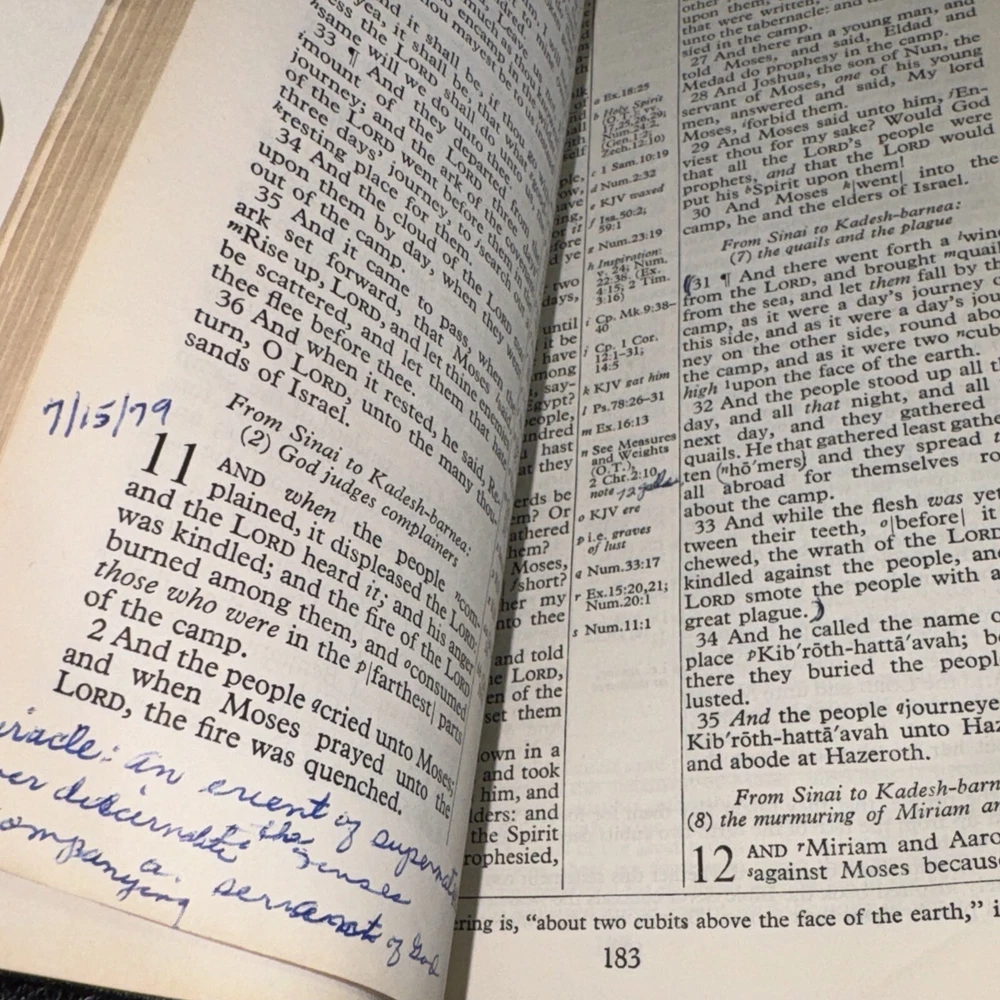 and it shall be, if thou
yea, it shall be,
ness the LORD
same will we do unto thee.
33 ¶ And they departed from the
mount of the LORD three days'
journey; and the ark of the covenant
of the LORD went before them
three days' journey, to search out a
ᵏresting place for them.
34 And the cloud of the LORD was
upon them by day, when they went
out of the camp.
35 And it came to pass, when the
ark set forward, that Moses said,
ᵐRise up, LORD, and let thine enemies
be scattered, and let them that hate
thee flee before thee.
36 And when it rested, he said, Re-
turn, O LORD, unto the many thou-
sands of Israel.
From Sinai to Kadesh-barnea:
(2) God judges complainers
7/15/79
11 AND when the people ⁿcom-
plained, it displeased the LORD:
and the LORD heard it; and his anger
was kindled; and the fire of the LORD
burned among them, and ᵒconsumed
those who were in the ᵖ|farthest| parts
of the camp.
2 And the people ᑫcried unto Moses;
and when Moses prayed unto the
LORD, the fire was quenched.
iracle: an event of supernat
the senses
ompanying a servant of God
ple,
ow,
have
ing,
or it
fore
d ye
two
days,
until
it be
have
mong
say-
Egypt?
people,
undred
u hast
at they
erds be
em? Or
athered
hem?
Moses,
short?
her my
nto thee
and told
he LORD,
en of the
set them
own in a
and took
him, and
lders: and
the Spirit
rophesied,
a Ex.18:25
b Holy Spirit
(O.T.): vv.
17,25,26,29;
Num.24:2.
(Gen.1:2;
Zech.12:10)
c 1 Sam.10:19
d Num.2:32
e KJV waxed
f Isa.50:2;
59:1
g Num.23:19
h Inspiration:
v. 24; Num.
22:38. (Ex.
4:15; 2 Tim.
3:16)
i Cp. Mk.9:38–
40
j Cp. 1 Cor.
12:1–31;
14:5
k KJV gat him
l Ps.78:26–31
m Ex.16:13
n See Measures
and Weights
(O.T.),
2 Chr.2:10,
note
o KJV ere
p i.e. graves
of lust
q Num.33:17
r Ex.15:20,21;
Num.20:1
s Num.11:1
upon them;
that were written,
unto the tabernacle: and
sied in the camp.
27 And there ran a young man, and
told Moses, and said, Eldad and
Medad do prophesy in the camp.
28 And Joshua, the son of Nun, the
servant of Moses, one of his young
men, answered and said, My lord
Moses, ⁱforbid them.
29 And Moses said unto him, ʲEn-
viest thou for my sake? Would God
that all the LORD's people were
prophets, and that the LORD would
put his ᵇSpirit upon them!
30 And Moses ᵏ|went| into the
camp, he and the elders of Israel.
From Sinai to Kadesh-barnea:
(7) the quails and the plague
31 ¶ And there went forth a ˡwin
from the LORD, and brought ᵐquail
from the sea, and let them fall by th
camp, as it were a day's journey o
this side, and as it were a day's jou
ney on the other side, round abo
the camp, and as it were two ⁿcub
high upon the face of the earth.
32 And the people stood up all th
day, and all that night, and all
next day, and they gathered
quails. He that gathered least gathe
ten (ⁿhō′mers) and they spread t
all abroad for themselves ro
about the camp.
33 And while the flesh was yet
tween their teeth, ᵒ|before| it
chewed, the wrath of the LORD
kindled against the people, and
LORD smote the people with a
great plague.)
34 And he called the name o
place ᵖKib′rōth-hattā′avah; be
there they buried the people
lusted.
35 And the people ᑫjourneye
Kib′rōth-hattā′avah unto Haz
and abode at Hazeroth.
From Sinai to Kadesh-barn
(8) the murmuring of Miriam an
12 AND ʳMiriam and Aaro
ˢagainst Moses because
ering is, "about two cubits above the face of the earth," i
183